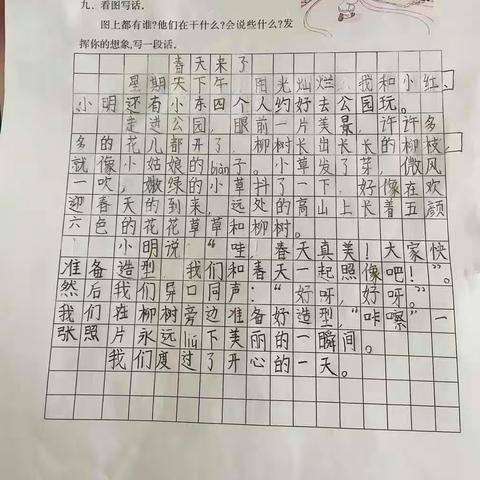 九、看图写话.
图上都有谁?他们在干什么?会说些什么?发
挥你的想象,写一段话.
春天来了
星期天下午,阳光灿烂,我和小红、
小明还有小东四个人约好去公园玩。
走进公园,眼前一片美景,许许多
多的花儿都开了,柳树长出长长的柳枝,
就像小姑娘的biàn子。小草发了芽,微风
一吹,嫩绿的小草抖了一下,好像在欢
迎春天的到来,远处的高山上长着五颜
六色的花花草草和柳树。
小明说:“哇,春天真美!大家快
准备造型,我们和春天一起照像吧!”。
然后我们异口同声:“好呀,好呀。”
我们在柳树旁边准备好造型,“咔嚓”一
张照片永远liú下美丽的一瞬间。
我们度过了开心的一天。